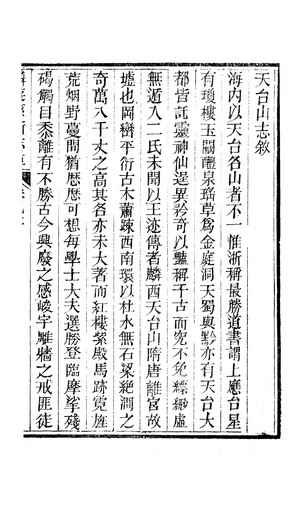 天台山志敘
海內以天台名山者不一惟浙稱最勝道書謂上應台星
有瓊樓玉闕醴泉瑤草為金庭洞天蜀與黔亦有天台大
都皆託靈神仙逞異矜奇以豔稱千古而究不免縹緲虛
無遁入二氏未聞以王迹傳者麟西天台山隋唐離宮故
墟也岡巒平衍古木蕭踈西南環以杜水無石梁絕澗之
奇萬八千丈之高其名亦未大著而紅樓紫殿馬跡霓旌
荒烟野蔓間猶歷歷可想每學士大夫選勝登臨摩挲殘
碣觸目黍離有不勝古今興廢之感峻宇雕牆之戒匪徒